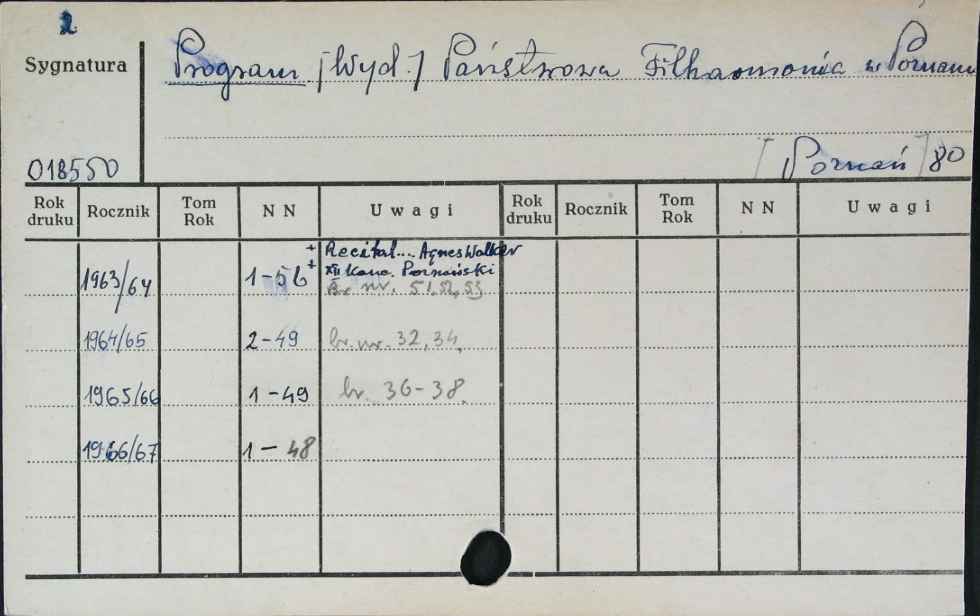 2
Sygnatura
Program [Wyd.] Państwowa Filharmonia w Poznaniu
018550
[Poznań] 80
Rok druku Rocznik Tom Rok N N Uwagi Rok druku Rocznik Tom Rok N N Uwagi
+ Recital... Agnes Walker
1963/64 1-56 + XII Konc. Poznański
Br. nr. 51, 52, 53
1964/65 2-49 br. nr. 32, 34,
1965/66 1-49 br. 36-38.
1966/67 1-48